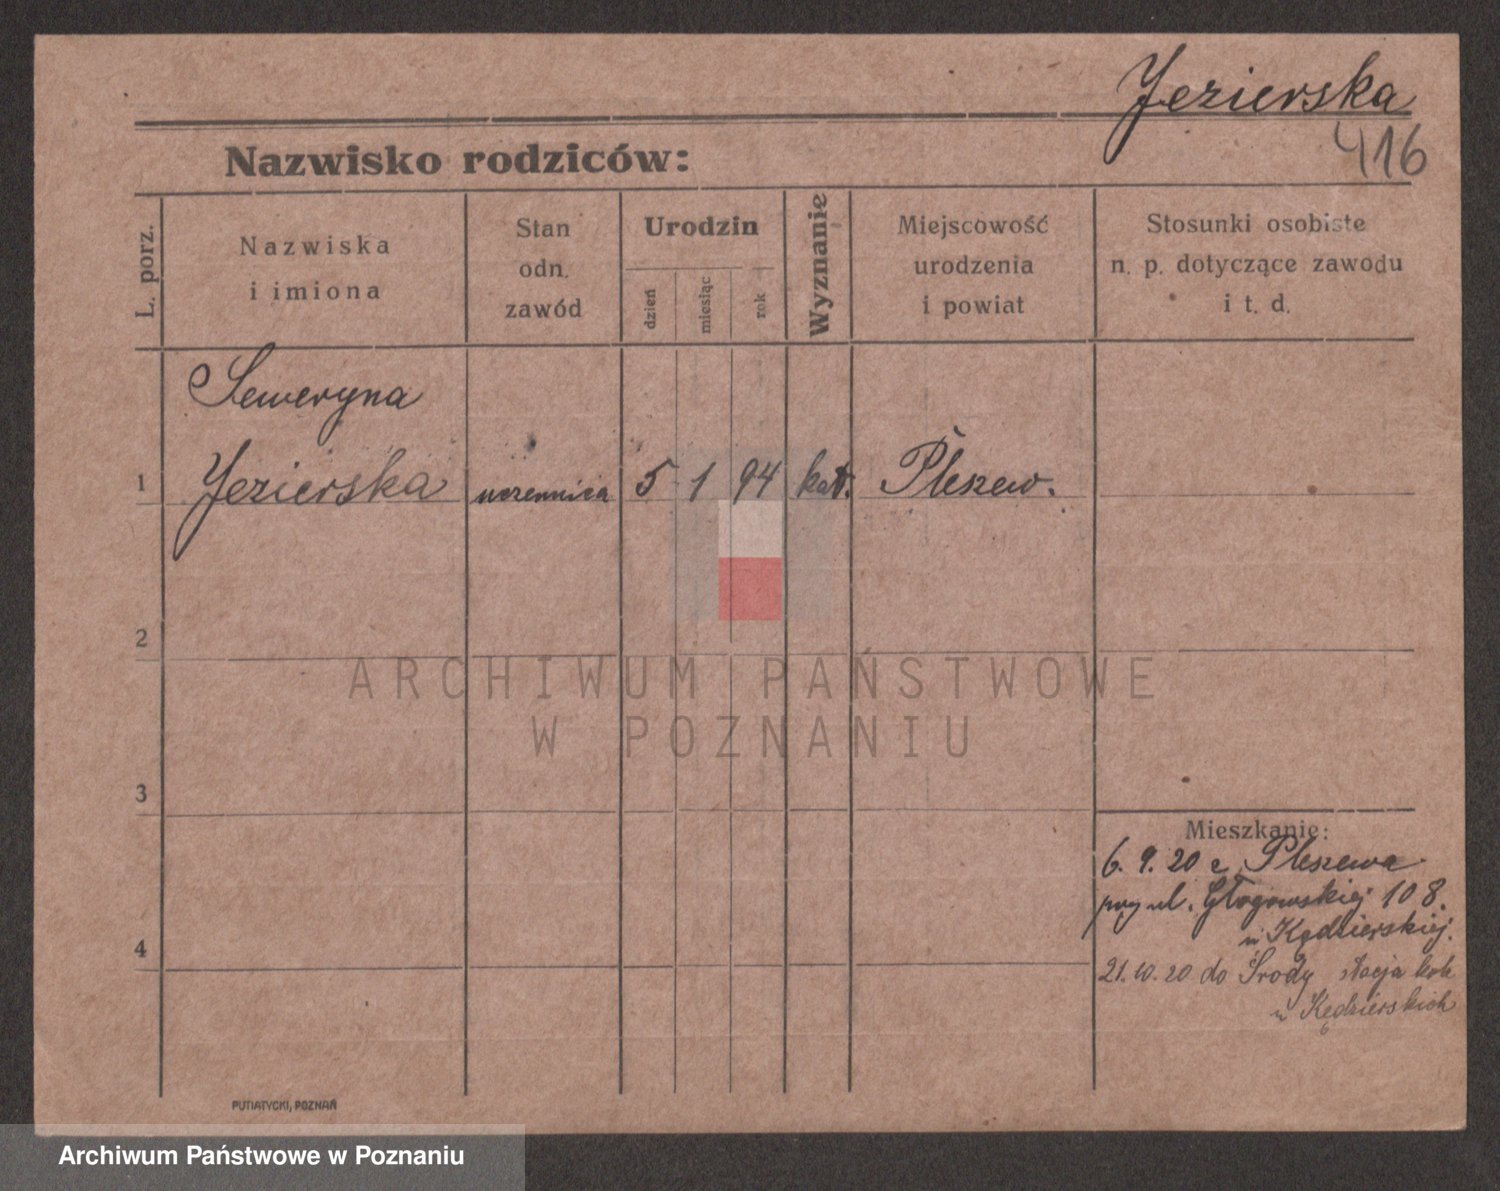 Jezierska
416
Nazwisko rodziców:
L. porz.
Nazwiska
i imiona
Stan
odn.
zawód
Urodzin
dzień
miesiąc
rok
Wyznanie
Miejscowość
urodzenia
i powiat
Stosunki osobiste
n. p. dotyczące zawodu
i t. d.
Seweryna
1 Jezierska uczennica 5 1 94 kat. Pleszew.
2
ARCHIWUM PAŃSTWOWE
W POZNANIU
3
Mieszkanie:
6. 9. 20 z Pleszewa
przy ul. Głogowskiej 108.
u Kędzierskiej.
4
21.10.20 do Środy stacja kol
u Kędzierskich
PUTIATYCKI, POZNAŃ
Archiwum Państwowe w Poznaniu